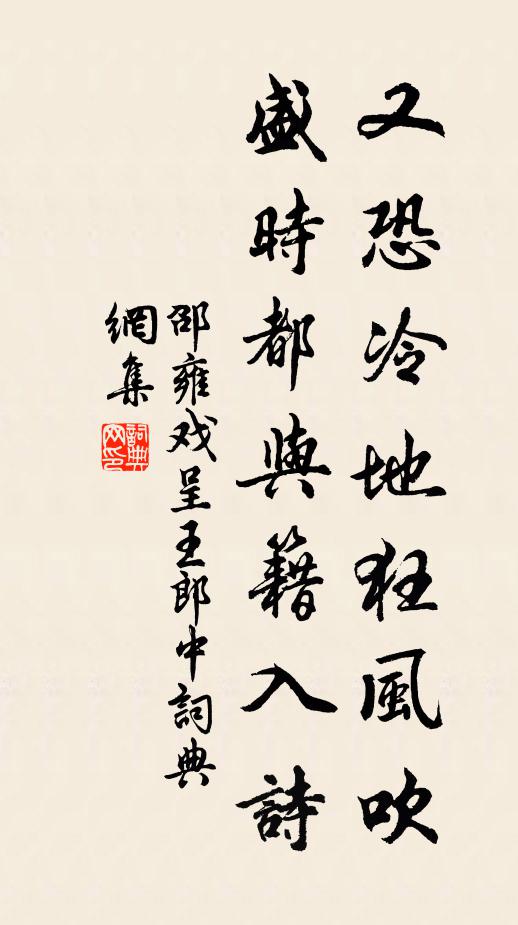 又恐冷地狂風吹
盛時都與籍入詩
邵雍戏呈王郎中詞典
網集
詞典
网印